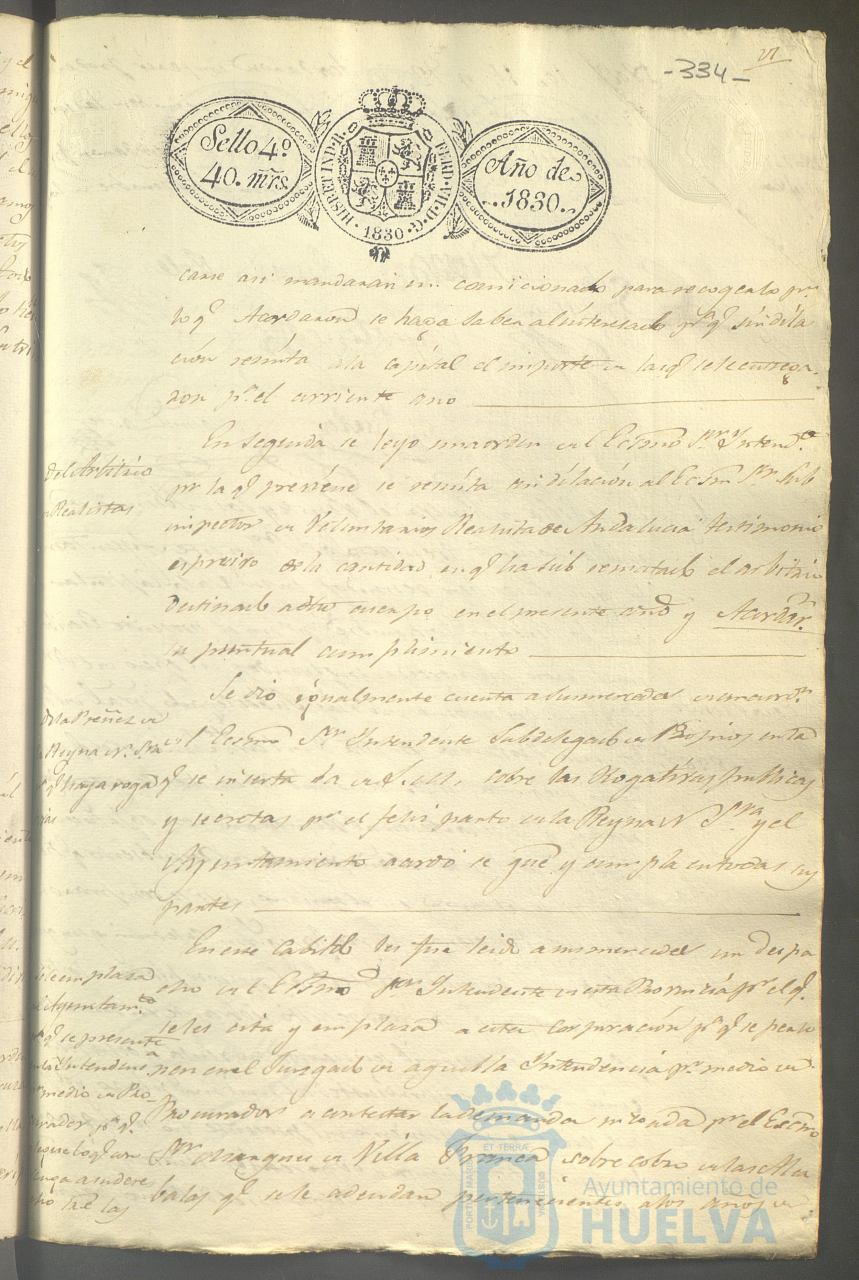 -334-
Sello 4º
40. mrs.
HISP. ET IND. R.
FERD. VII. D. G.
1830
Año de
1830.
carse asi mandaran un comicionado para recogerlo pr.
lo q.e Acordaron se haga saber al interesado pr. q.e sin dila
ción remita a la capital el importe de la q.e se le entrega-
ron pr. el corriente ano
En seguida se leyo una orden del Ecsmo Sr. Yntend.te
pr. la q.e previene se remita sin dilación al Ecsmo Sr. Sub
inspector de Voluntarios Realistas de Andalucia testimonio
espreivo de la cantidad en q.e ha sido rematado el arbitrio
destinado a dho cuerpo en el presente año y Acordar.n
su puntual cumplimiento
Se dio igualmente cuenta a sus mercedes de una ord.n
del Ecsmo Sr. Yntendente Subdelegado de Propios en la
q.e se inserta la de S.M. sobre las Rogativas publicas
y secretas pr. el felis parto de la Reyna N. Sra. y el
Ayuntamiento acordó se g.de y cumpla en todas sus
partes
En este Cabildo les fue leido a sus mercedes un despa
cho del Ecsmo Sor Yntendente de esta Provincia pr. el q.e
se les cita y emplaza a esta corporación pr. q.e se perso
nen en el Jusgado de aquella Yntendencia pr. medio de
Procurador a contestar la demanda incoada pr. el Ecsmo
Sr. Marques de Villa Franca sobre cobro de las alca
balas q.e se le adeudan pertenecientes a los años de
del Arbitrio
Realistas
De la Preñes de
la Reyna N.ª Sra.
q.e haya rogati
vas
Se emplaza
al Ayuntam.to
pr. q.e se presente
en la Yntendencia
pr. medio de Pro-
curador pr. q.e
tenga a su dere
cho
PORTUS MARIS ET TERRAE CUSTODIA
Ayuntamiento de
HUELVA